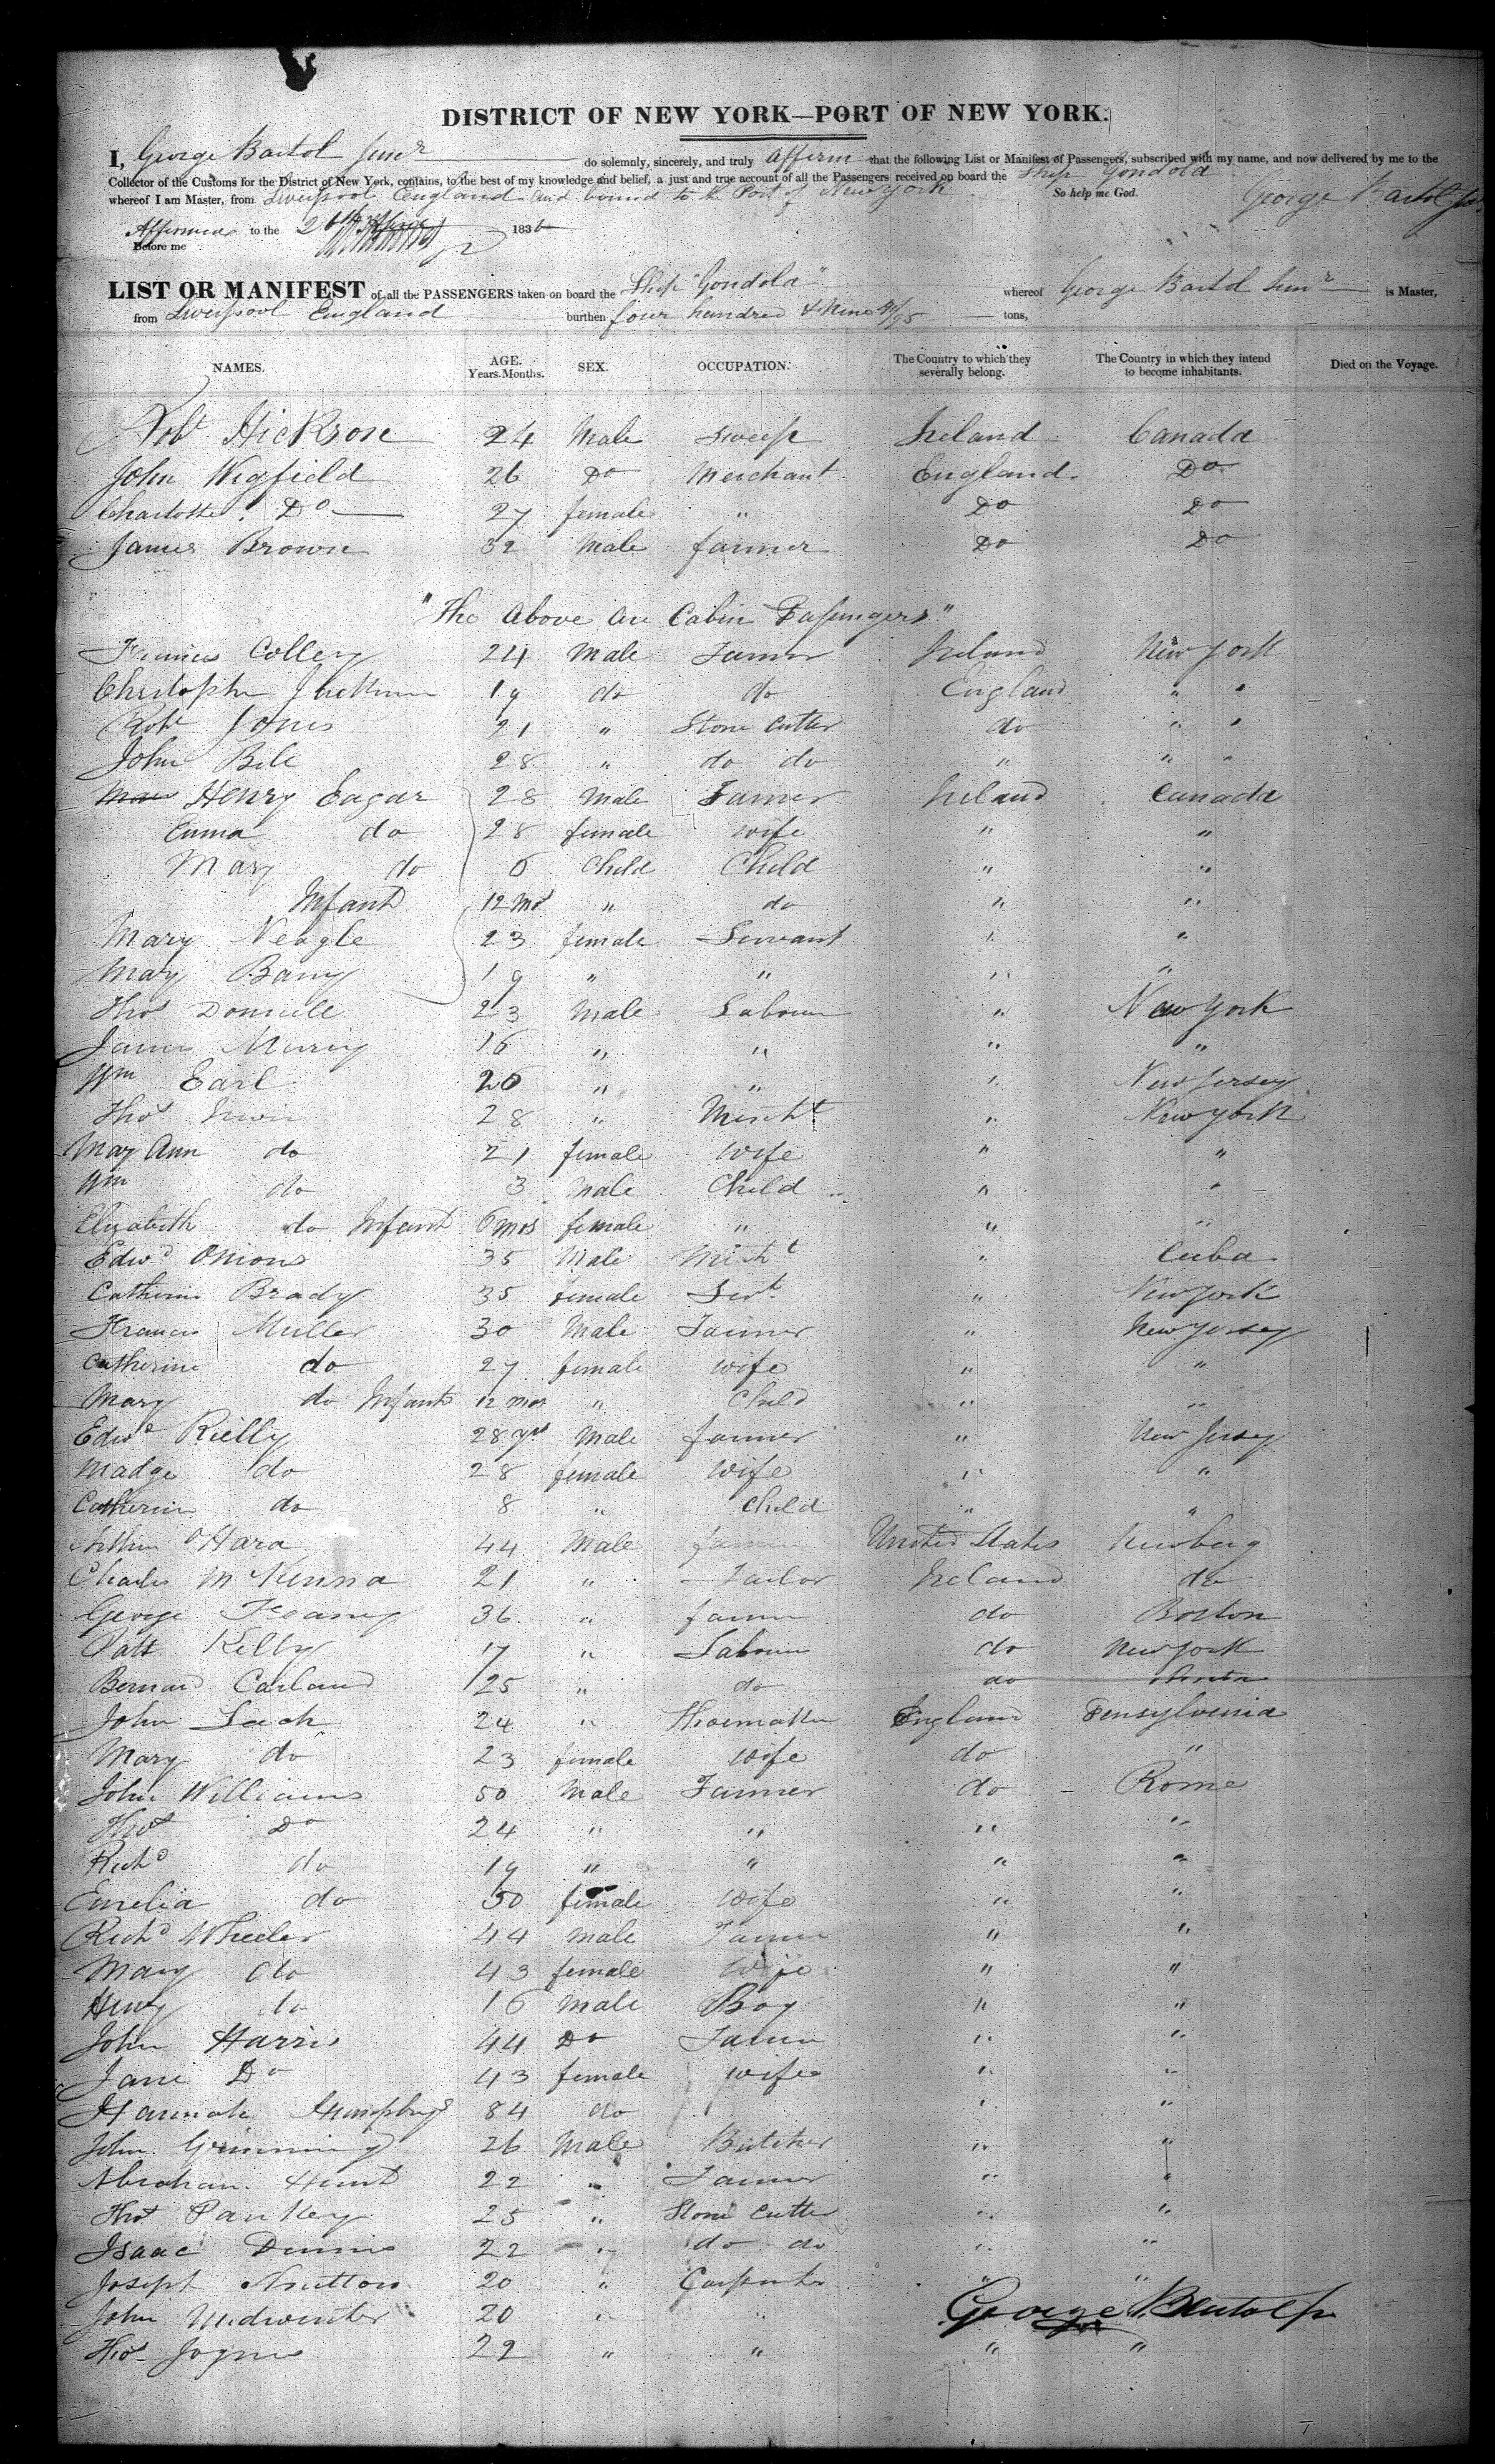 DISTRICT OF NEW YORK—PORT OF NEW YORK.
I, George Bartol Junr do solemnly, sincerely, and truly affirm that the following List or Manifest of Passengers, subscribed with my name, and now delivered by me to the
Collector of the Customs for the District of New York, contains, to the best of my knowledge and belief, a just and true account of all the Passengers received on board the Ship Gondola
whereof I am Master, from Liverpool England and bound to the Port of New York So help me God. George Bartol Jr
Affirmed to the 26th 183
Before me
LIST OR MANIFEST of all the PASSENGERS taken on board the Ship "Gondola" whereof George Bartol Junr is Master,
from Liverpool England burthen four hundred & Nine /95 tons,
NAMES. AGE. Years. Months. SEX. OCCUPATION. The Country to which they severally belong. The Country in which they intend to become inhabitants. Died on the Voyage.
Robt Hickson 24 Male Ireland Canada
John Wigfield 26 Do Merchant England Do
Charlotte Do 27 female " Do Do
James Brown 32 Male farmer Do Do
"The above are Cabin Passengers"
Francis Colley 24 Male Farmer Ireland New York
Christopher 19 do do England " "
Robt Jones 21 " Stone Cutter do " "
John Bile 28 " do do " " "
Henry Eagar 28 Male Farmer Ireland Canada
Emma do 28 female wife " "
Mary do 6 Child Child " "
Infant 12 Mos " do " "
Mary Neagle 23 female Servant " "
Mary Barry 19 " " " "
Thos Donnelle 23 Male Labourer " New York
James 16 " " " "
Wm Earl 26 " " " New Jersey
Thos Irwin 28 " Mercht " New York
Mary Ann do 21 female wife " "
Wm do 3 Male Child " "
Elizabeth do Infant 6 mos female " " "
Edwd Onions 35 Male Mercht " Cuba
Catherine Brady 35 female Servt " New York
Francis Muller 30 Male Farmer " New Jersey
Catherine do 27 female wife " "
Mary do Infant 12 mos " Child " "
Edwd Rielly 28 yrs Male farmer " New Jersey
Madge do 28 female wife " "
Catherine do 8 " Child " "
Arthur O'Hara 44 Male farmer United States Newberg
Charles McKenna 21 " Tailor Ireland do
George 36 " farmer do Boston
Patt Kelly 17 " Labourer do New York
Bernard Carland 25 " do do
John Lach 24 " Shoemaker England Pensylvenia
Mary do 23 female wife do "
John Williams 50 Male Farmer do Rome
Thos Do 24 " " " "
Richd do 19 " " " "
Emelia do 50 female wife " "
Richd Wheeler 44 Male Farmer " "
Mary do 43 female wife " "
Henry do 16 Male Boy " "
John Harris 44 Do Farmer " "
Jane Do 43 female wife " "
Hannah Humphrys 84 do " "
John Grimming 26 Male Butcher " "
Abraham Hunt 22 " Farmer " "
Thos Pankey 25 " Stone Cutter " "
Isaac Dennis 22 " do do " "
Joseph 20 " Carpenter " "
John Midwinter 20 " " George Bartol Jr
Thos Joynes 22 " " " "